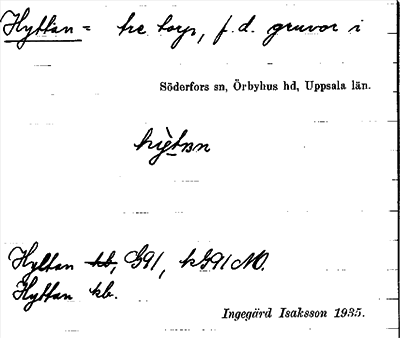 Hyttan = tre torp, f.d. gruvor i
Söderfors sn, Örbyhus hd, Uppsala län.
hỳtan
Hyttan kb, G91, kG91 MO.
Hyttan kb.
Ingegärd Isaksson 1935.